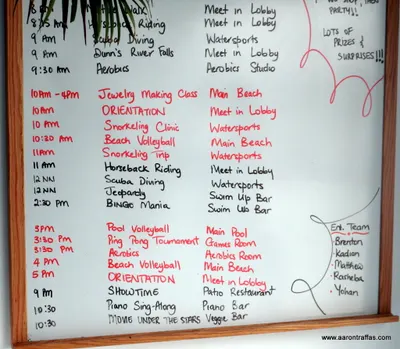 8 am Nature Walk Meet in Lobby
8:15 Am Horseback Riding Meet in Lobby
9 Am Scuba Diving Watersports
9 Am Dunn's River Falls Meet in Lobby
9:30 Am Aerobics Aerobics Studio
PARTY!!
LOTS OF
PRIZES &
SURPRISES!!!
10AM - 4PM Jewelry Making Class Main Beach
10am ORIENTATION Meet in Lobby
10 AM Snorkeling Clinic Watersports
10:30 AM Beach Volleyball Main Beach
11AM Snorkeling Trip Watersports
11 Am Horseback Riding Meet in Lobby
12NN Scuba Diving Watersports
12 NN Jeopardy Swim Up Bar
2:30 PM BINGO Mania Swim Up Bar
3PM Pool Volleyball Main Pool
3:30 PM Ping Pong Tournament Games Room
3:30 Pm Aerobics Aerobics Room
4 PM Beach Volleyball Main Beach
5 Am ORIENTATION Meet in Lobby
9 Am SHOWTIME Patio Restaurant
10:30 Piano Sing-Along Piano Bar
10:30 MOVIE UNDER THE STARS Veggie Bar
Ent. Team
- Brenton
- Kadian
- Matthew
- Yohan
www.aarontraffas.com